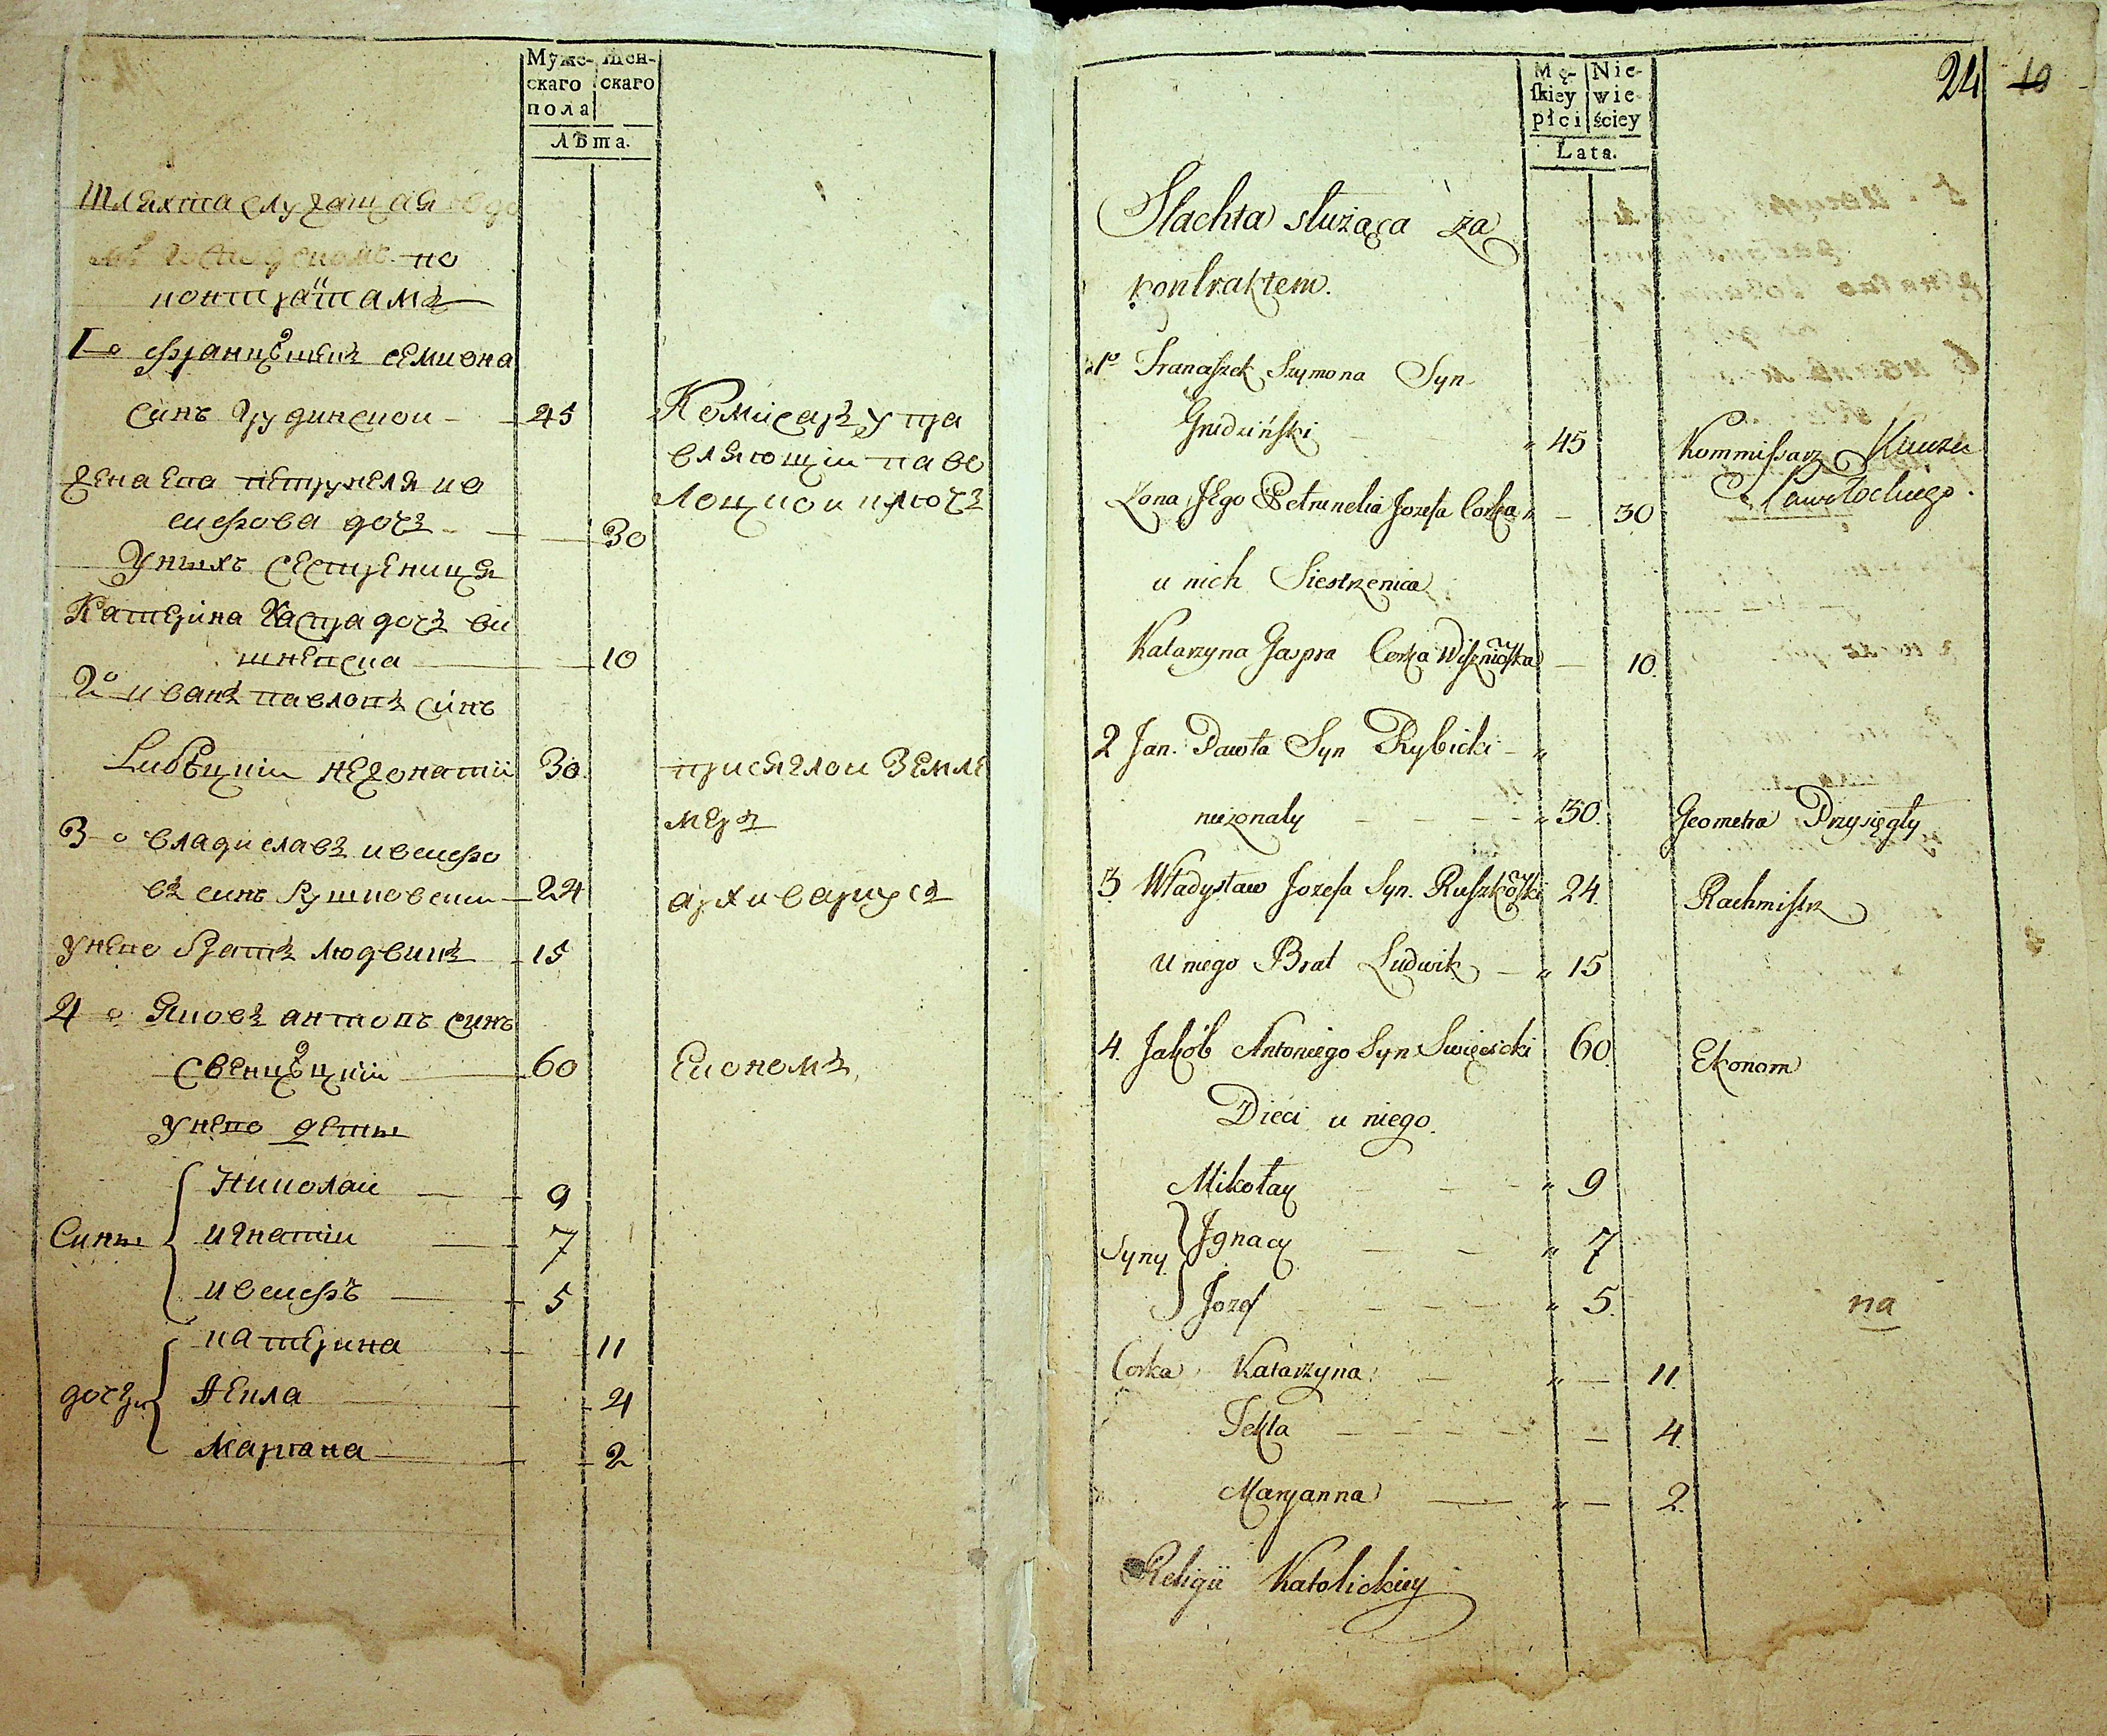 Муже- Жен-
скаго скаго
пола
Лѣта.
Шляхта служащая
по
контрактамъ
1-о Францѣшекъ Семиона
синъ Грудинской 45 Комисаръ упра
вляющій паво
жена его Петрунеля ио
лоцкой ключъ
сифова дочъ 30
У ныхъ сестреница
Катерина Каспра дочъ ви
шневска 10
2о Иванъ Павловъ синъ
Рибѣцкій нежонатій 30 присяглой земле
меръ
3-о Владиславъ Иосифо
въ синъ Рушковскій 24 архиваріусъ
у него братъ Людвикъ 15
4 о Яковъ Антонъ синъ
Свенцѣцкій 60 Економъ
У него деты
Николай 9
Сины Игнатій 7
Иосифъ 5
Катерина 11
дочери Текла 4
Мариана 2
Mę- Nie-
skiey wie-
płci ściey
Lata.
24 10
Slachta służąca za
kontraktem.
1o Franciszek Szymona Syn
Grudziński 45 Kommissarz Klucza
Pawołockiego.
Zona Jego Petrunelia Jozefa Corka 30
u nich Siestrzenica
Katarzyna Gaspra Corka Wiszniowska 10.
2 Jan. Pawła Syn Rybicki
nieżonaty 30. Geometra Przysięgły
3 Władysław Jozefa Syn. Ruszkowski 24. Rachmistrz
u niego Brat Ludwik 15
4. Jakób Antoniego Syn Swięcicki 60. Ekonom
Dzieci u niego.
Mikołay 9
Syny Jgnacy 7
Jozef 5. na
Corka Katarzyna 11.
Tekla 4.
Maryanna 2.
Religii Katolickiey